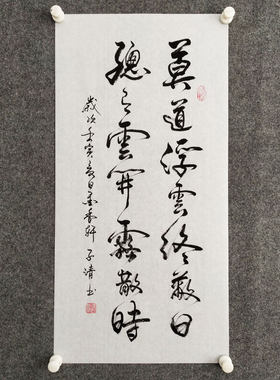 莫道浮雲終蔽日
總有雲開霧散時
歲次壬寅日墨香軒 子清书